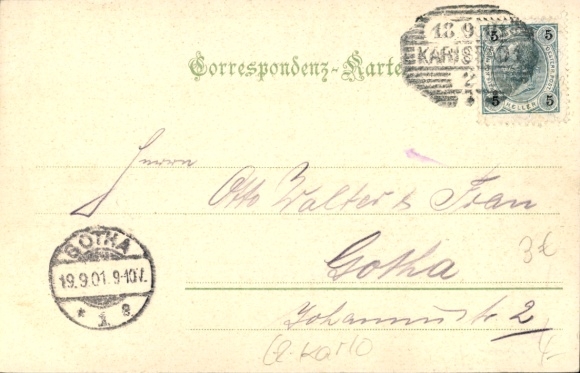 18 9
5 5
KARLSBAD 1
2
5 5
HELLER
Correspondenz-Karte
Herrn
Otto Walter & Frau
3€
GOTHA
19.9.01.9-10V.
* 1 *
Gotha
Johannisstr 2